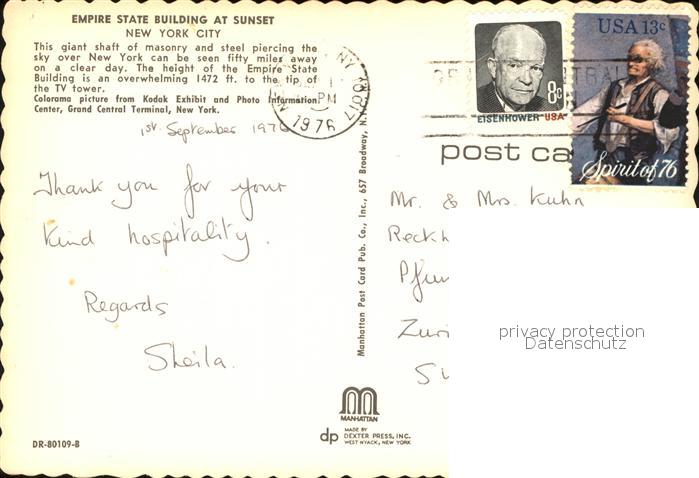 EMPIRE STATE BUILDING AT SUNSET
NEW YORK CITY
This giant shaft of masonry and steel piercing the
sky over New York can be seen fifty miles away
on a clear day. The height of the Empire State
Building is an overwhelming 1472 ft. to the tip of
the TV tower.
Colorama picture from Kodak Exhibit and Photo Information
Center, Grand Central Terminal, New York.
1st September 1976
Thank you for your
kind hospitality.
Regards
Sheila.
DR-80109-B
Manhattan Post Card Pub. Co., Inc., 657 Broadway, N.Y.
MANHATTAN
dp
MADE BY
DEXTER PRESS, INC.
WEST NYACK, NEW YORK
NY 10017
PM
1976
8c
EISENHOWER USA
USA 13c
Spirit of 76
post ca
Mr. & Mrs. Kuhn
Reckh
Pfun
Zuri
privacy protection
Datenschutz